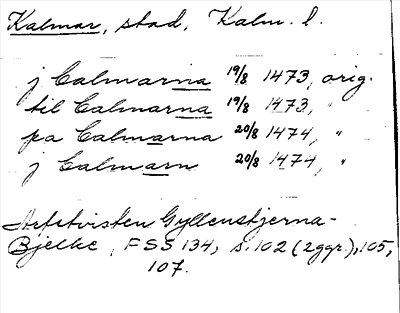 Kalmar, stad, Kalm. l.
j Calmarna 19/8 1473, orig.
til Calmarna 19/8 1473, "
pa Calmarna 20/8 1474, "
j Calmarn 20/8 1474, "
Arfstvisten Gyllenstjerna-
Bjelke, FSS 134, s. 102 (2 ggr), 105,
107.